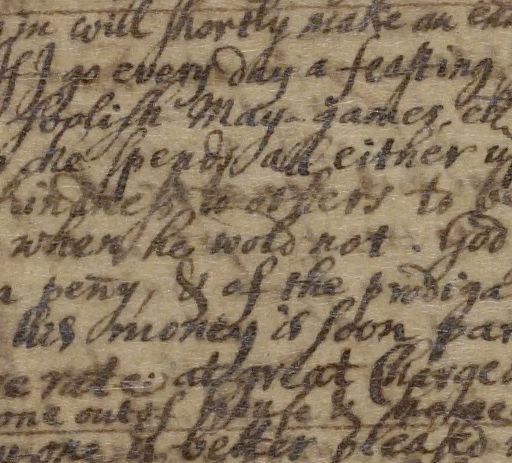 in will shortly make an end
If I go every day a feasting
foolish May-games, etc
he spends all either up
kindness to others to be
when he wold not. God
a peñy, & of the prodiga
his money is soon par
at great Charges
one out of house & home
one is better pleased